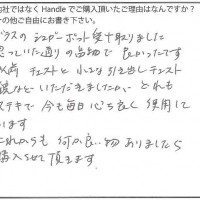 他社ではなく Handle でご購入頂いたご理由はなんですか？
その他ご自由にお書き下さい。
ガラスのシュガーポット受け取りました
思っていた通りの品物で良かったです
以前チェストと小さな引き出しチェスト
鏡などいただきましたが、とても
ステキで今も毎日心ち良く使用して
います
これからも何か良い物ありましたら
購入させて頂きます。